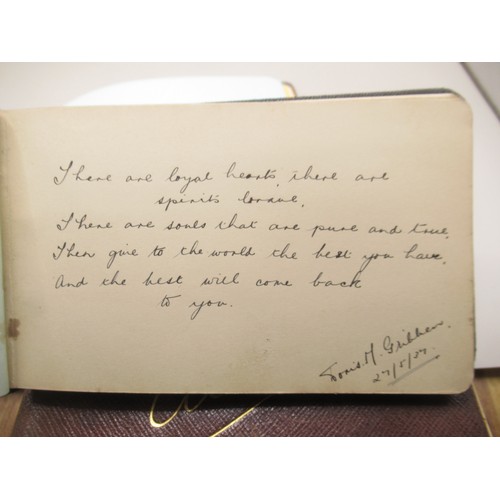 There are loyal hearts, there are
spirits brave,
There are souls that are pure and true,
Then give to the world the best you have,
And the best will come back
to you.
Doris M.